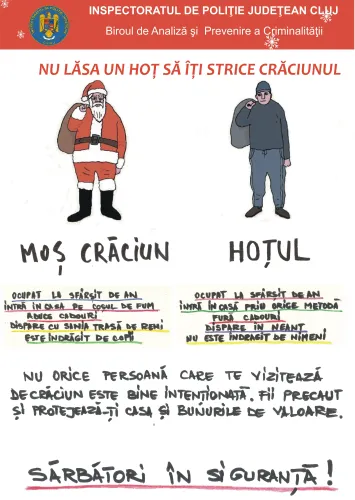 INSPECTORATUL DE POLIŢIE JUDEŢEAN CLUJ
Biroul de Analiză şi Prevenire a Criminalităţii
NU LĂSA UN HOȚ SĂ ÎȚI STRICE CRĂCIUNUL
MOȘ CRĂCIUN
OCUPAT LA SFÂRȘIT DE AN
INTRĂ ÎN CASA PE COȘUL DE FUM
ADUCE CADOURI
DISPARE CU SANIA TRASĂ DE RENI
ESTE ÎNDRĂGIT DE COPII
HOȚUL
OCUPAT LA SFÂRȘIT DE AN
INTRĂ ÎN CASĂ PRIN ORICE METODĂ
FURĂ CADOURI
DISPARE IN NEANT
NU ESTE INDRAGIT DE NIMENI
NU ORICE PERSOANĂ CARE TE VIZITEAZĂ
DE CRĂCIUN ESTE BINE INTENȚIONATĂ. FII PRECAUT
ȘI PROTEJEAZĂ-ȚI CASA ȘI BUNURILE DE VALOARE.
SĂRBĂTORI ÎN SIGURANȚĂ!